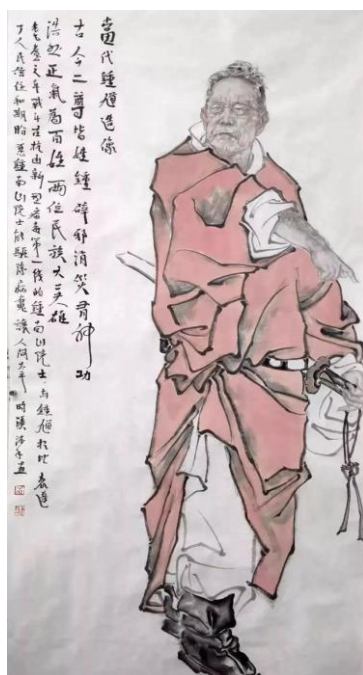 當代鍾馗造像
古今二尊皆姓鍾辟邪消災有神功
浩然正氣為百姓兩位民族大英雄
耄耋之年戰斗在抗击新型病毒第一线的鍾南山院士与鍾馗相比表達
了人民信任和期盼愿鍾南山院士能驅除病魔讓人間太平